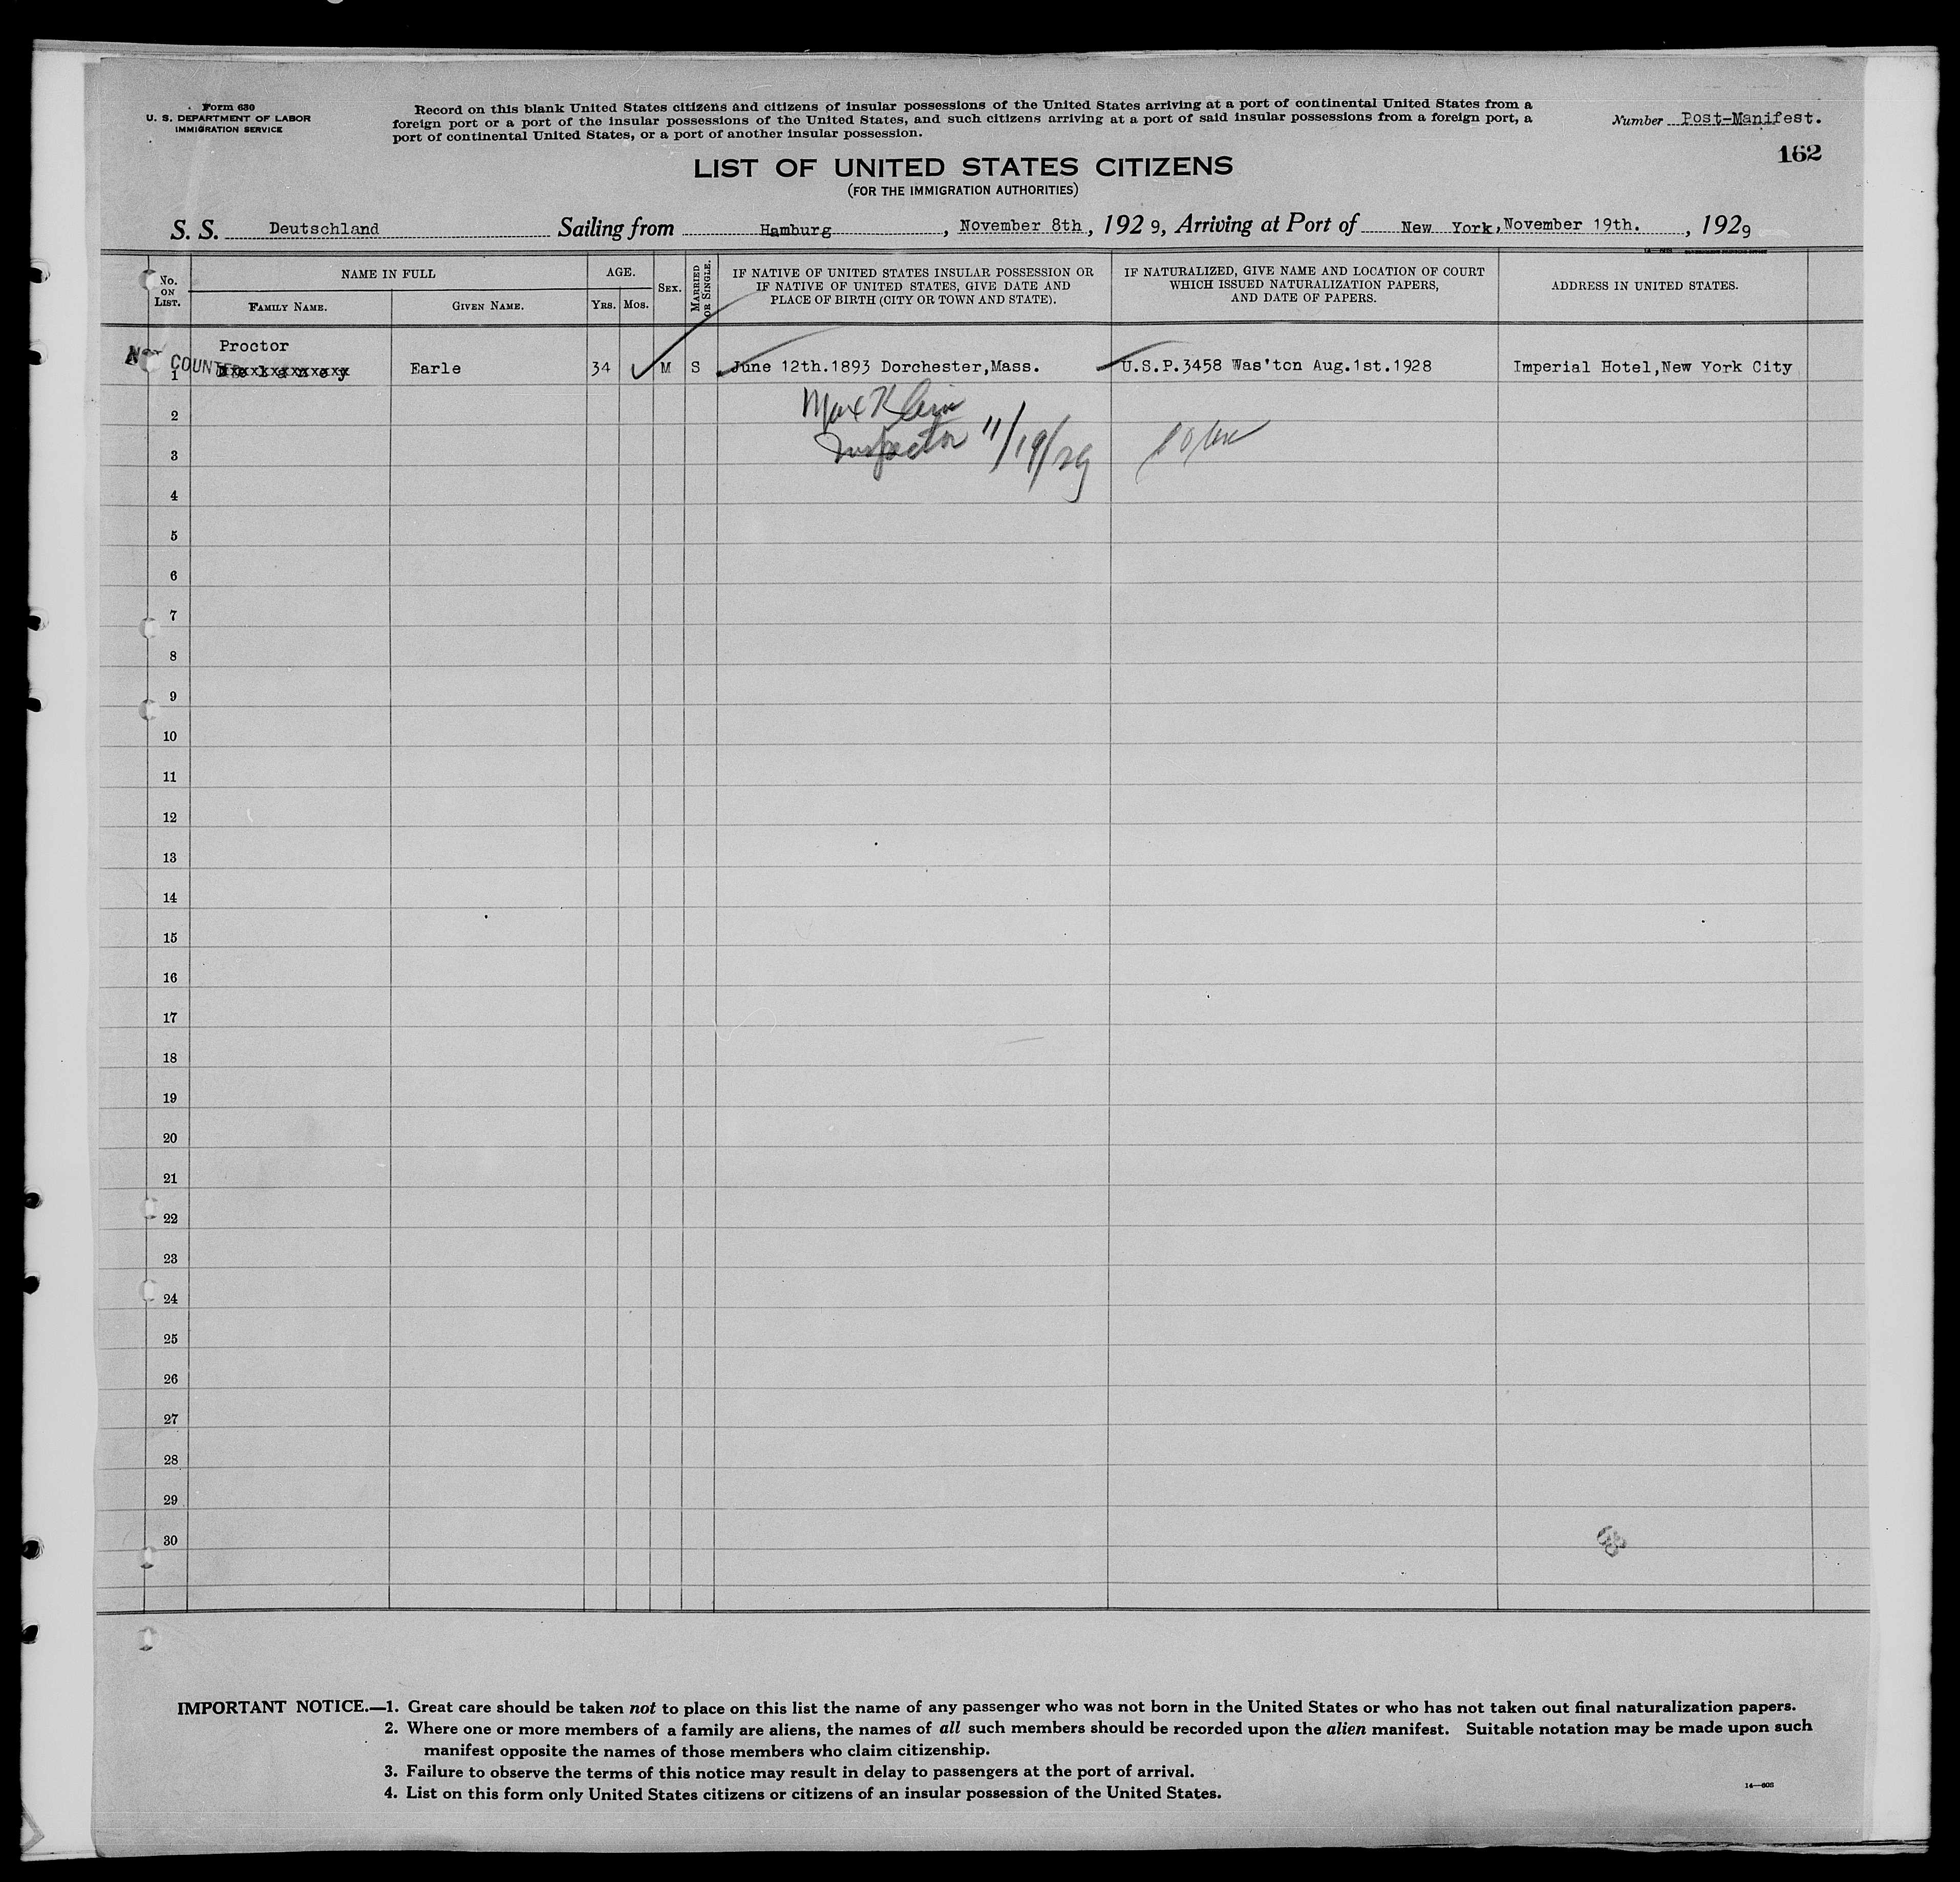 Form 630
U. S. DEPARTMENT OF LABOR
IMMIGRATION SERVICE
Record on this blank United States citizens and citizens of insular possessions of the United States arriving at a port of continental United States from a
foreign port or a port of the insular possessions of the United States, and such citizens arriving at a port of said insular possessions from a foreign port, a
port of continental United States, or a port of another insular possession.
Number Post-Manifest.
162
LIST OF UNITED STATES CITIZENS
(FOR THE IMMIGRATION AUTHORITIES)
S. S. Deutschland Sailing from Hamburg, November 8th, 1929, Arriving at Port of New York, November 19th., 1929
No. ON LIST.
NAME IN FULL
FAMILY NAME.
GIVEN NAME.
AGE.
YRS.
MOS.
SEX.
MARRIED OR SINGLE.
IF NATIVE OF UNITED STATES INSULAR POSSESSION OR
IF NATIVE OF UNITED STATES, GIVE DATE AND
PLACE OF BIRTH (CITY OR TOWN AND STATE).
IF NATURALIZED, GIVE NAME AND LOCATION OF COURT
WHICH ISSUED NATURALIZATION PAPERS,
AND DATE OF PAPERS.
ADDRESS IN UNITED STATES.
Proctor
1 Earle 34 M S June 12th.1893 Dorchester,Mass. U.S.P.3458 Was'ton Aug.1st.1928 Imperial Hotel,New York City
Max Klein
2
Inspector 11/19/29
3
4
5
6
7
8
9
10
11
12
13
14
15
16
17
18
19
20
21
22
23
24
25
26
27
28
29
30
IMPORTANT NOTICE.—1. Great care should be taken not to place on this list the name of any passenger who was not born in the United States or who has not taken out final naturalization papers.
2. Where one or more members of a family are aliens, the names of all such members should be recorded upon the alien manifest. Suitable notation may be made upon such
manifest opposite the names of those members who claim citizenship.
3. Failure to observe the terms of this notice may result in delay to passengers at the port of arrival.
4. List on this form only United States citizens or citizens of an insular possession of the United States.